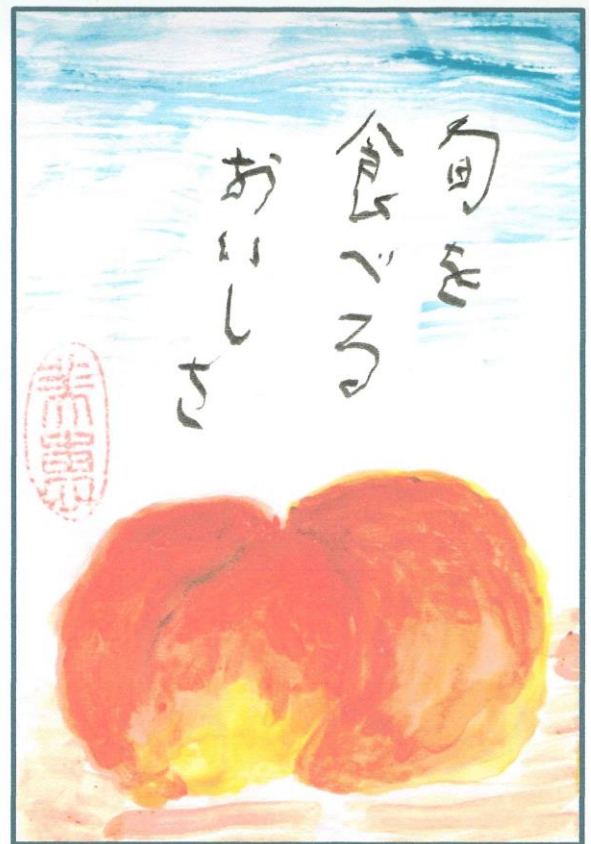 旬を
食べる
おいしさ